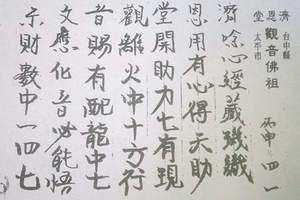 濟 台中縣 觀音佛祖 丙申 四一
恩堂 太平市
濟唸心經藏璣織
恩用有心得天助
堂開助力七有現
觀離火中十方行
音賜有配龍中七
文應化音必能悟
示財數中一四七